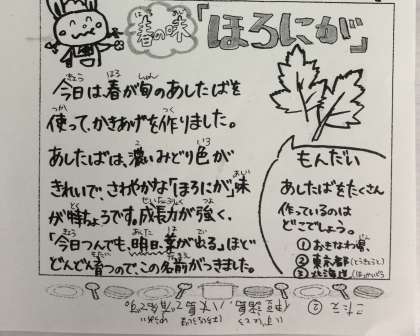 春の味
「ほろにが」
今日は、春が旬のあしたばを
使って、かきあげを作りました。
あしたばは、濃いみどり色が
きれいで、さわやかな「ほろにが」味
が特ちょうです。成長力が強く、
「今日つんでも、明日、葉が出る」ほど
どんどん育つので、この名前がつきました。
もんだい
あしたばをたくさん
作っているのは
どこでしょう。
①おきなわ県
②東京都(とうきょうと)
③北海道(ほっかいどう)
こたえ ②
伊豆諸島、八丈島で